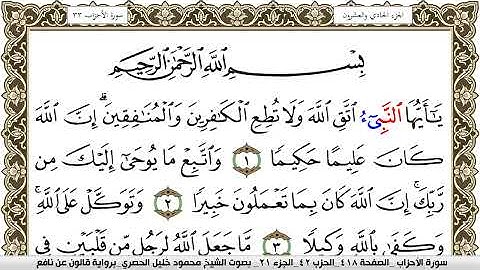 سورة الأحزاب ٣٣
الجزء الحادي والعشرون
بِسْمِ اللَّهِ الرَّحْمَٰنِ الرَّحِيمِ
يَٰٓأَيُّهَا النَّبِيٓءُ اتَّقِ اللَّهَ وَلَا تُطِعِ الْكَٰفِرِينَ وَالْمُنَٰفِقِينَۖ إِنَّ اللَّهَ
كَانَ عَلِيمًا حَكِيمًا ١ وَاتَّبِعْ مَا يُوحَىٰٓ إِلَيْكَ مِن
رَّبِّكَۚ إِنَّ اللَّهَ كَانَ بِمَا تَعْمَلُونَ خَبِيرًا ٢ وَتَوَكَّلْ عَلَى اللَّهِۚ
وَكَفَىٰ بِاللَّهِ وَكِيلًا ٣ مَّا جَعَلَ اللَّهُ لِرَجُلٍ مِّن قَلْبَيْنِ فِي
سورة الأحزاب _الصفحة ٤١٨_ الحزب ٤٢_ الجزء ٢١_ بصوت الشيخ محمود خليل الحصري_ برواية قالون عن نافع